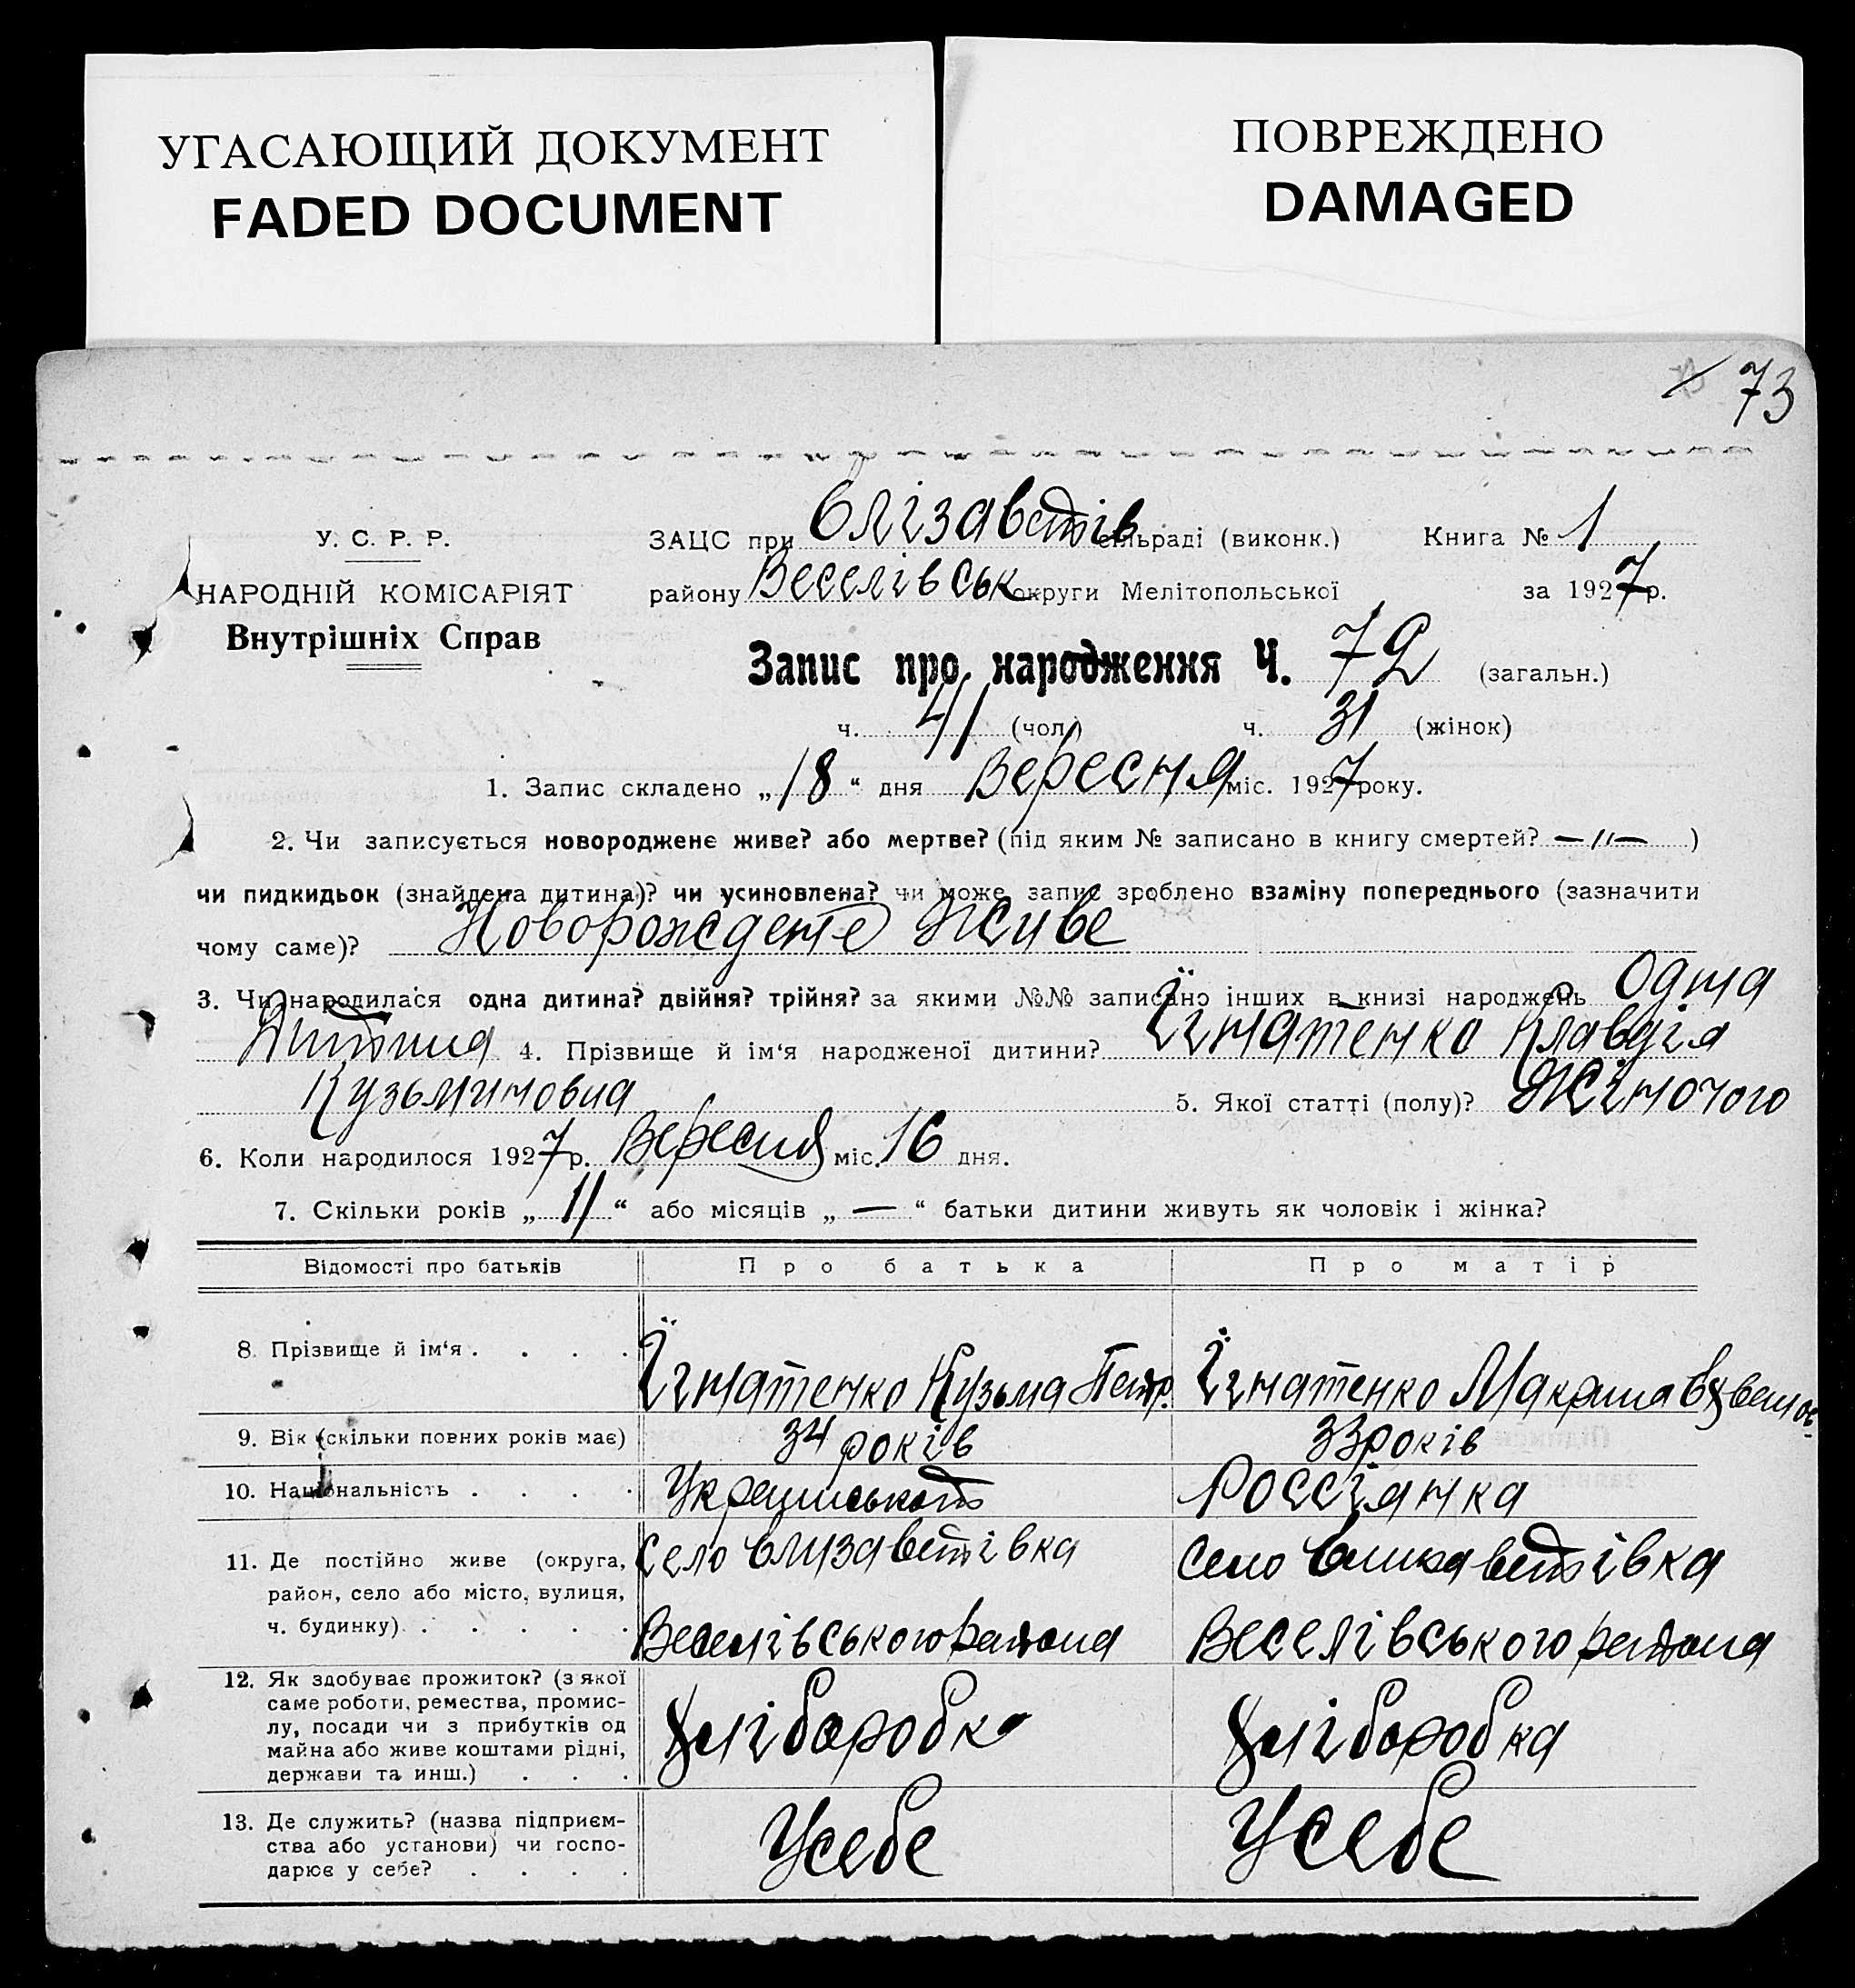 УГАСАЮЩИЙ ДОКУМЕНТ
FADED DOCUMENT
ПОВРЕЖДЕНО
DAMAGED
73
У. С. Р. Р.
НАРОДНІЙ КОМІСАРІЯТ
Внутрішніх Справ
ЗАЦС при Єлізаветів сільраді (виконк.) Книга № 1
району Веселівськ округи Мелітопольської за 1927 р.
Запис про народження Ч. 72 (загальн.)
ч. 41 (чол.) ч. 31 (жінок)
1. Запис складено „18“ дня Вересня міс. 1927 року.
2. Чи записується новороджене живе? або мертве? (під яким № записано в книгу смертей? —〃— )
чи пидкидьок (знайдена дитина)? чи усиновлена? чи може запис зроблено взаміну попереднього (зазначити
чому саме)? Новорождене живе
3. Чи народилася одна дитина? двійня? трійня? за якими №№ записано інших в книзі народжень Одна
Дитина 4. Прізвище й ім'я народженої дитини? Їгнатенко Клавдія
Кузьминовна 5. Якої статті (полу)? Жіночого
6. Коли народилося 1927 р. Вересня міс. 16 дня.
7. Скільки років „11“ або місяців „—“ батьки дитини живуть як чоловік і жінка?
Відомості про батьків Про батька Про матір
8. Прізвище й ім'я . . . . Їгнатенко Кузьма Петр. Їгнатенко Макрина
9. Вік (скільки повних років має) 34 років 33 років
10. Національність . . . . Украинськот Россіянка
11. Де постійно живе (округа, Село Єлизаветівка Село Єлизаветівка
район, село або місто, вулиця,
ч. будинку) . . . . . Веселівського района Веселівського района
12. Як здобуває прожиток? (з якої
саме роботи, ремества, промис-
лу, посади чи з прибутків од Хліборобка Хліборобка
майна або живе коштами рідні,
держави та инш.) . . .
13. Де служить? (назва підприєм-
ства або установи) чи госпо- Усебе Усебе
дарює у себе? . . . .